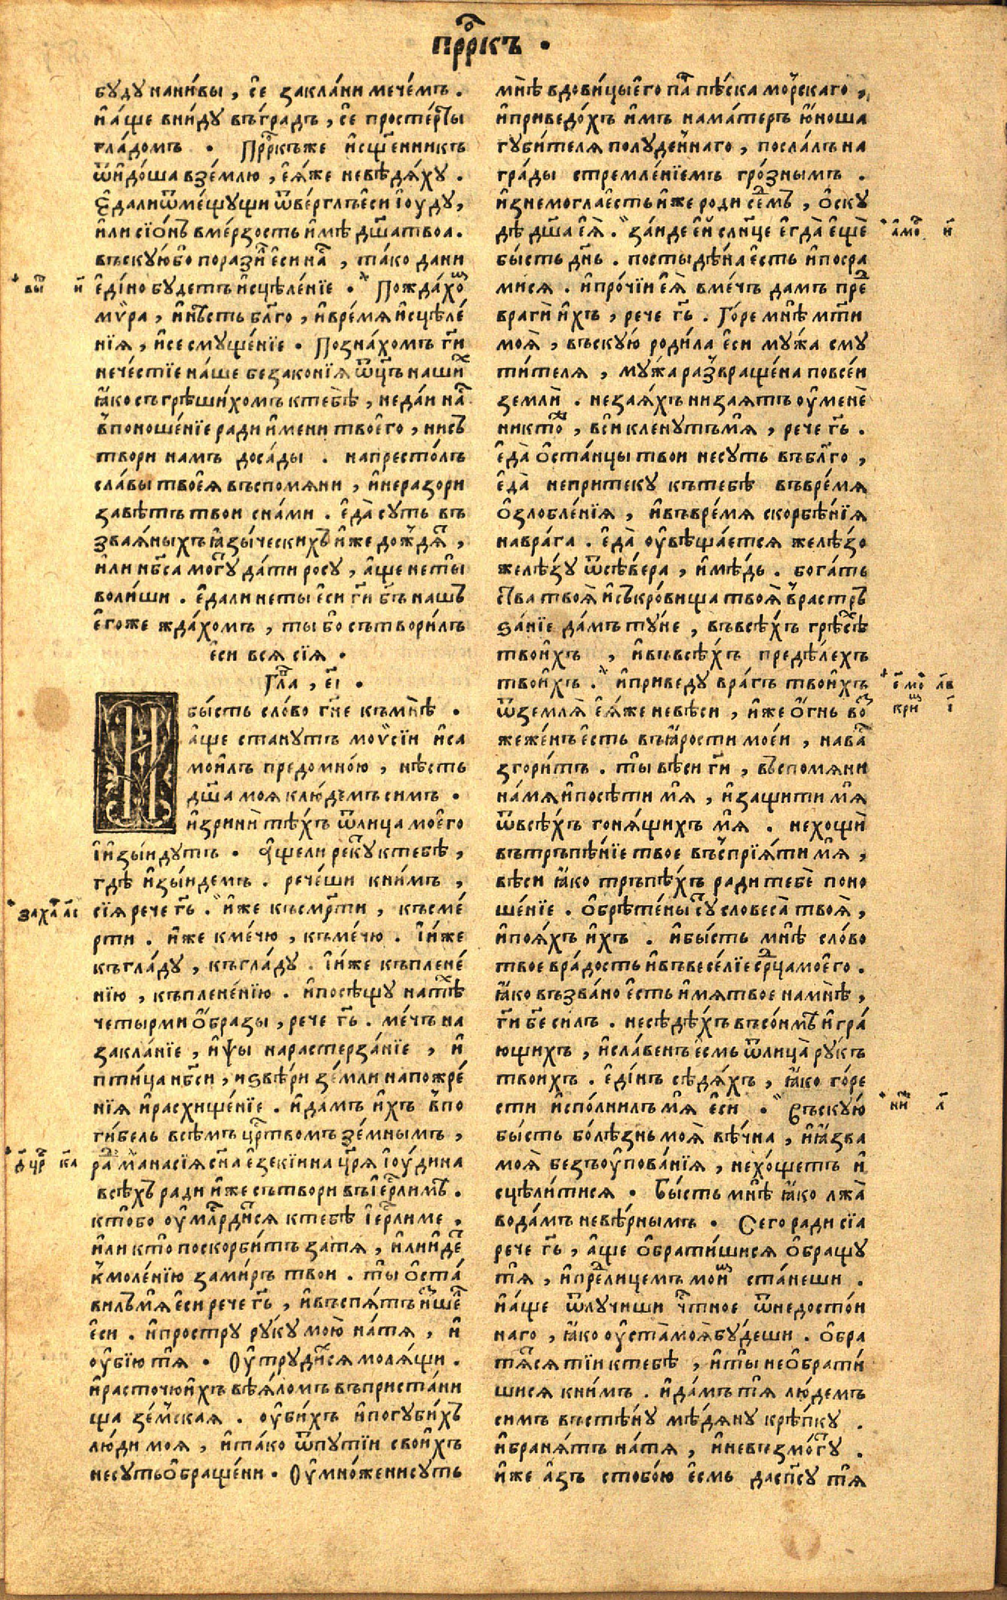 прⷪ҇ркъ .
буду нанивы , се закланимечемъ .
иаще вниду въградъ , се простертⷭ҇ы
гладомъ . Прⷪ҇ркъже исщ҃енникъ
ѿидоша вземлю , еяже невѣдяху .
Єдалиѿмещущи ѿверглъеси іоуду ,
или сіонъ вмерзость имѣ дш҃атвоа .
въскуюбо поразиⷧ҇ есина , тако дани
едіно будетъ исцѣленіе . Пождахоⷨ
мѵра , инѣсть бл҃го , ивремя исцѣле
нія , исе смущеніе . Познахомъ гⷭ҇и
нечестіе наше безаконія ѿц҃ъ нашиⷯ
ꙗко съгрѣшихомъ ктебѣ , недаи наⷭ
впоношеніе ради имени твоего , нисъ
твори намъ досады . напрестолъ
славы твоея въспомяни , инеразори
завѣтъ твои снами . еда суть въ
зваяныхъ ꙗзыческихъ иже дождѧⷮ ,
или нб҃са могⷹ дати росу , аще неты
волиши . едали неты еси гⷭ҇и бг҃ъ нашъ
егоже ждахомъ , ты бо сътворилъ
еси вся сія .
Глⷡ҇а , е҃і .
И
бысть слово гн҃е къмнѣ .
аще станутъ моѵсіи иса
моилъ предомною , нѣсть
дш҃а моя клюдемъ симъ .
изрини тѣхъ ѿлица моего
іизыидутъ . Ощели рекⷹ ктебѣ ,
гдѣ изыидемъ . речеши книмъ ,
сія рече гⷭ҇ь . иже късмрⷭ҇ти , късме
рти . иже кмечю , къмечю . Іиже
къгладу , къгладу . Іиже къплене
нію , къпленению . ипосѣщу натѣⷯ
четырми образы , рече гⷭ҇ь . мечъ на
закланіе , ипсы нарастерзаніе , и
птица нб҃си , извѣри земли напожре
нія ирасхищеніе . идамъ ихъ впо
гибель всѣмъ црⷭ҇твомъ земнымъ ,
раⷣ манасія сн҃а езекіина цр҃я іоудина
всѣхъ ради иже сътвори въіерⷭ҇лимѣ .
ктобо умлрⷭ҇дися ктебѣ іерⷭ҇лиме ,
или кто поскорбитъ затя , илиидеⷮ
кмоленію замиръ твои . ты оста
вилъмя еси рече гⷭ҇ь , ивъспять шеⷧ
еси . ипростру руку мою натя , и
оубію тя . Оутрудихся молящи .
ирасточюихъ вѣяломъ въпристани
ща земьская . оубихъ ипогубихъ
люди моя , итако ѿпутіи своихъ
несутьобращени . Оумноженисуть
мнѣ вдовицыего паⷱ пѣска морскаго ,
иприведохъ имъ наматеръ юноша
губителя полуденнаго , послалъ на
грады стремленіемъ грознымъ .
изнемоглаесть иже роди седмь , оску
дѣ дш҃а ея . заиде еи слнⷰ҇е егда еще
бысть дн҃ь . постыдѣна есть ипосра
мися . ипрочіи ея вмечь дамъ преⷣ
враги ихъ , рече гⷭ҇ь . Горе мнѣ мт҃и
моя , въскую родила еси мужа сму
тителя , мужа развращена повсеи
земли . незаяхъ низаятъ оумене
никтоⷤ , вси кленутъмя , рече гⷭ҇ь .
еда останцы твои несуть въбл҃го ,
еда непритеку кътебѣ въвремя
озлобленія , ивъвремя скорбѣнія
наврага . еда оувѣщается желѣзо
желѣзу ѿсѣвера , имѣдь . богать
стⷭ҇ва твоя исъкровища твоя врастръ
ѕаніе дамъ туне , въвсѣхъ грѣсѣⷯ
твоихъ , ивъвсѣхъ предѣлехъ
твоихъ . иприведу врагъ твоихъ
ѿземля еяже невѣси , иже огнь воⷥ
жеженъесть въꙗрости моеи , наваⷭ
згоритъ . ты вѣси гⷭ҇и , въспомяни
намя ипосѣти мя , изащити мя
ѿвсѣхъ гонящихъ мя . нехощи
вътръпѣніе твое въсприяти мя ,
вѣси ꙗко тръпѣхъ ради тебе поно
шеніе . Обрѣтены сⷹть словеса твоя ,
ипояхъ ихъ . ибысть мнѣ слово
твое врадость ивъвеселіе срⷣ҇цамоего .
ꙗко възвано есть имятвое намнѣ ,
гⷭ҇и бж҃е силъ . неседѣхъ въсонмѣ игра
ющихъ , иславенъ есмь ѿлица рукъ
твоихъ . едінъ сѣдяхъ , ꙗко горе
сти исполнилъмя еси . Въскую
бысть болѣзнь моя вѣчна , иꙗзва
моя безъоупованія , нехощетъ и
сцѣлитися . Бысть мнѣ ꙗко лжа
водамъ невѣрнымъ . Сего ради сіа
рече гⷭ҇ь , аще обратишися обращу
тя , ипрⷣелицемъ моиⷨ станеши .
иаще ѿлучиши чтⷭ҇ное ѿнедостои
наго , ꙗко оустамоябудеши . обра
тятся тіи ктебѣ , иты необрати
шися книмъ . идамъ тя людемъ
симъ въстѣну мѣдяну крѣпку .
ибранятъ натя , иневъзмогⷹ .
иже азъ стобою есмь даспсⷭ҇у тя
захаⷬ аі
амоⷭ и